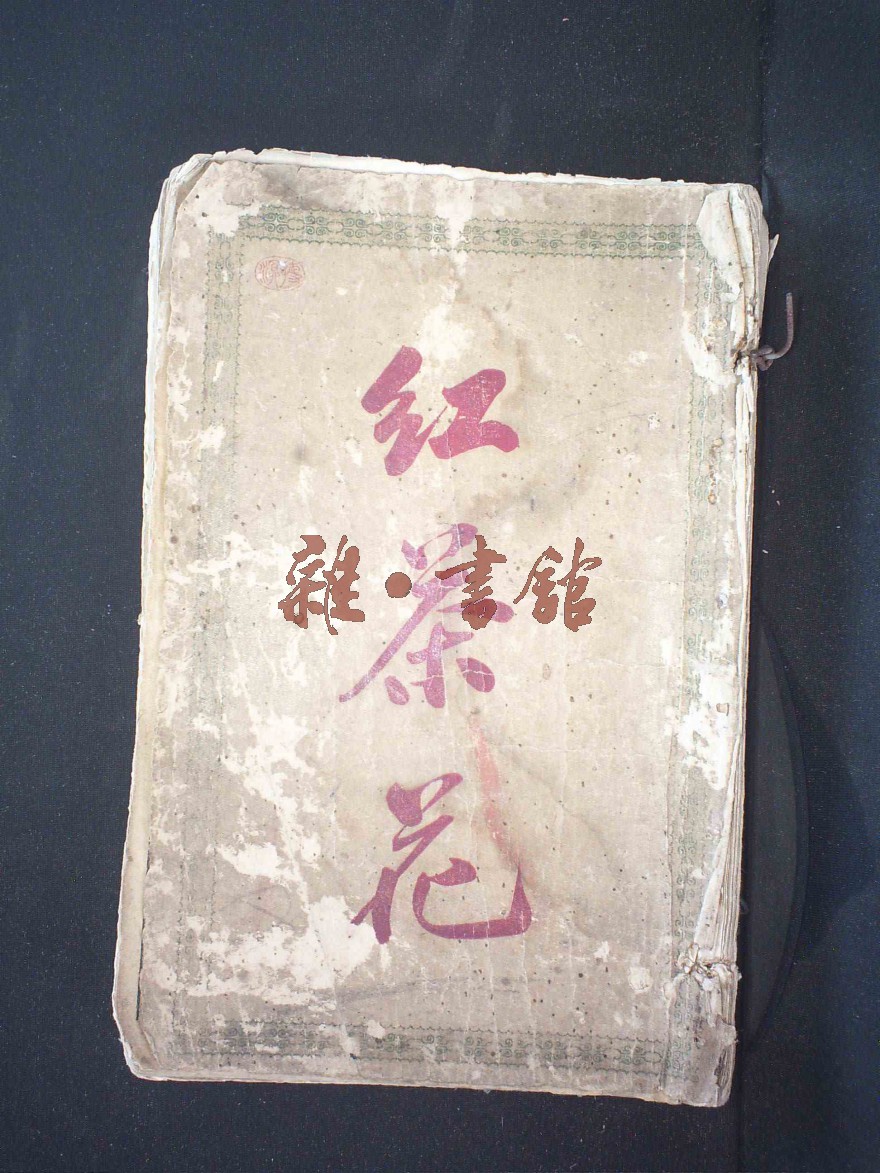 红茶花
雜·書館